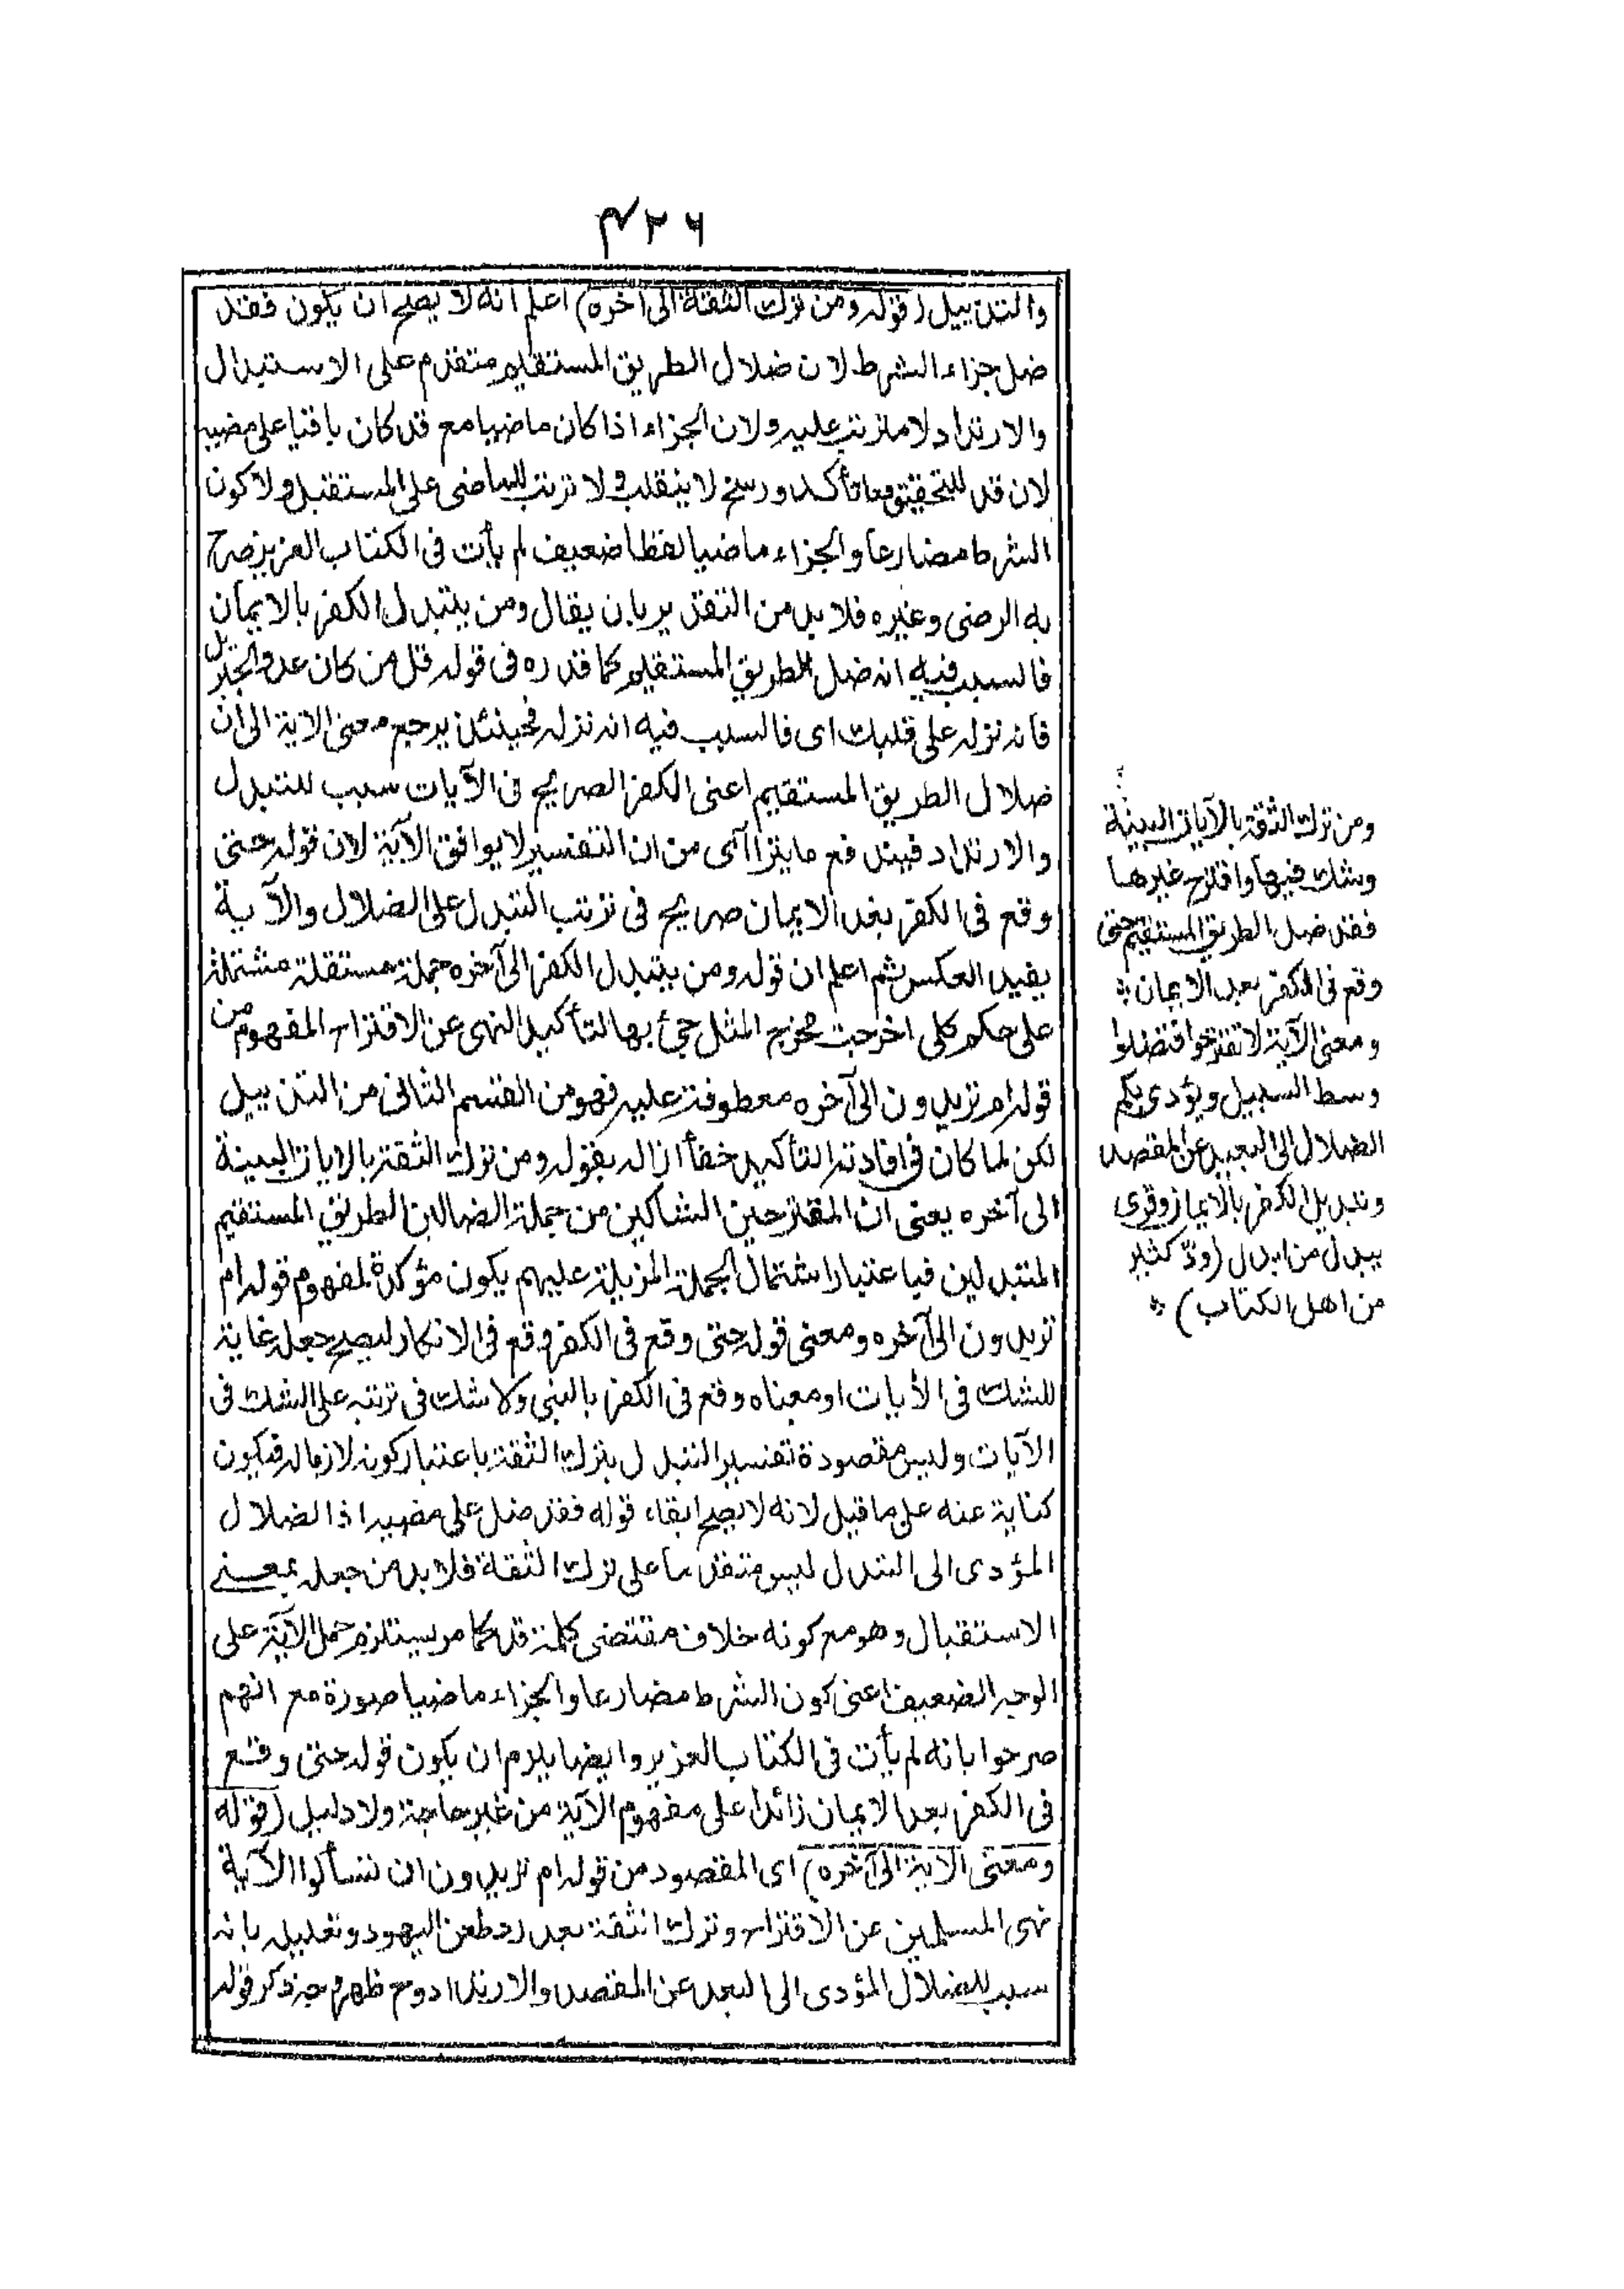 ٤٢٦
والتذييل (قوله ومن ترك الثقة الى آخره) اعلم انه لا يصلح ان يكون فقد
ضل جزاء الشرط لان ضلال الطريق المستقيم متقدم على الاستبدال
والارتداد لا مترتب عليه ولان الجزاء اذا كان ماضيا مع قد كان باقيا على مضيه
لان قد للتحقيق وما تأكد ورسخ لا ينقلب ولا ترتب للماضى على المستقبل ولا كون
الشرط مضارعا والجزاء ماضيا لفظا ضعيف لم يأت فى الكتاب العزيز صرح
به الرضى وغيره فلا بد من التقدير بان يقال ومن يتبدل الكفر بالايمان
فالسبب فيه انه ضل الطريق المستقيم كما قدره فى قوله قل من كان عدوا لجبريل
فانه نزله على قلبك اى فالسبب فيه انه نزله فحينئذ يرجع معنى الآية الى ان
ضلال الطريق المستقيم اعنى الكفر الصريح فى الآيات سبب للتبدل
والارتداد فيندفع ما يتراآى من ان التفسير لا يوافق الآية لان قوله حتى
وقع فى الكفر بعد الايمان صريح فى ترتب التبدل على الضلال والآية
يفيد العكس ثم اعلم ان قوله ومن يتبدل الكفر الى آخره جملة مستقلة مشتملة
على حكم كلى اخرجت مخرج المثل جئ بها لتأكيد النهى عن الاقتراح المفهوم من
قوله ام تريدون الى آخره معطوفة عليه فهو من القسم الثانى من التذييل
لكن لما كان فى افادته التأكيد خفأ ازاله بقوله ومن ترك الثقة بالايات البينة
الى آخره يعنى ان المقترحين الشاكين من جملة الضالين الطريق المستقيم
المتبدلين فباعتبار اشتمال الجملة المزيلة عليهم يكون مؤكدة لمفهوم قوله ام
تريدون الى آخره ومعنى قوله حتى وقع فى الكفر وقع فى الانكار ليصح جعله غاية
للشك فى الأيات او معناه وقع فى الكفر بالنبى ولا شك فى ترتبه على الشك فى
الآيات وليس مقصودة تفسير التبدل بترك الثقة باعتبار كونه لازما له فيكون
كناية عنه على ما قيل لانه لا يصح ابقاء قوله فقد ضل على مضيه اذ الضلال
المؤدى الى التبدل ليس متقدما على ترك الثقة فلا بد من جعله بمعنى
الاستقبال وهو مع كونه خلاف مقتضى كلمة قد كما مر يستلزم حمل الآية على
الوجه الضعيف اعنى كون الشرط مضارعا والجزاء ماضيا صورة مع انهم
صرحوا بانه لم يأت فى الكتاب العزيز وايضا يلزم ان يكون قوله حتى وقع
فى الكفر بعد الايمان زائدا على مفهوم الآية من غير حاجة ولا دليل (قوله
ومعنى الآية الى آخره) اى المقصود من قوله ام تريدون ان تسألوا الآية
نهى المسلمين عن الاقتراح وترك الثقة بعد رد طعن اليهود وتعليله بانه
سبب للضلال المؤدى الى البعد عن المقصد والارتداد وح ظهر وجه ذكر قوله
ومن ترك الثقة بالآيات البينة
وشك فيها واقترح غيرها
فقد ضل الطريق المستقيم حتى
وقع فى الكفر بعد الايمان *
ومعنى الآية لا تقترحوا فتضلوا
وسط السبيل ويؤدى بكم
الضلال الى البعد عن المقصد
وتبديل الكفر بالايمان وقرى
يبدل من ابدل (ود كثير
من اهل الكتاب) *